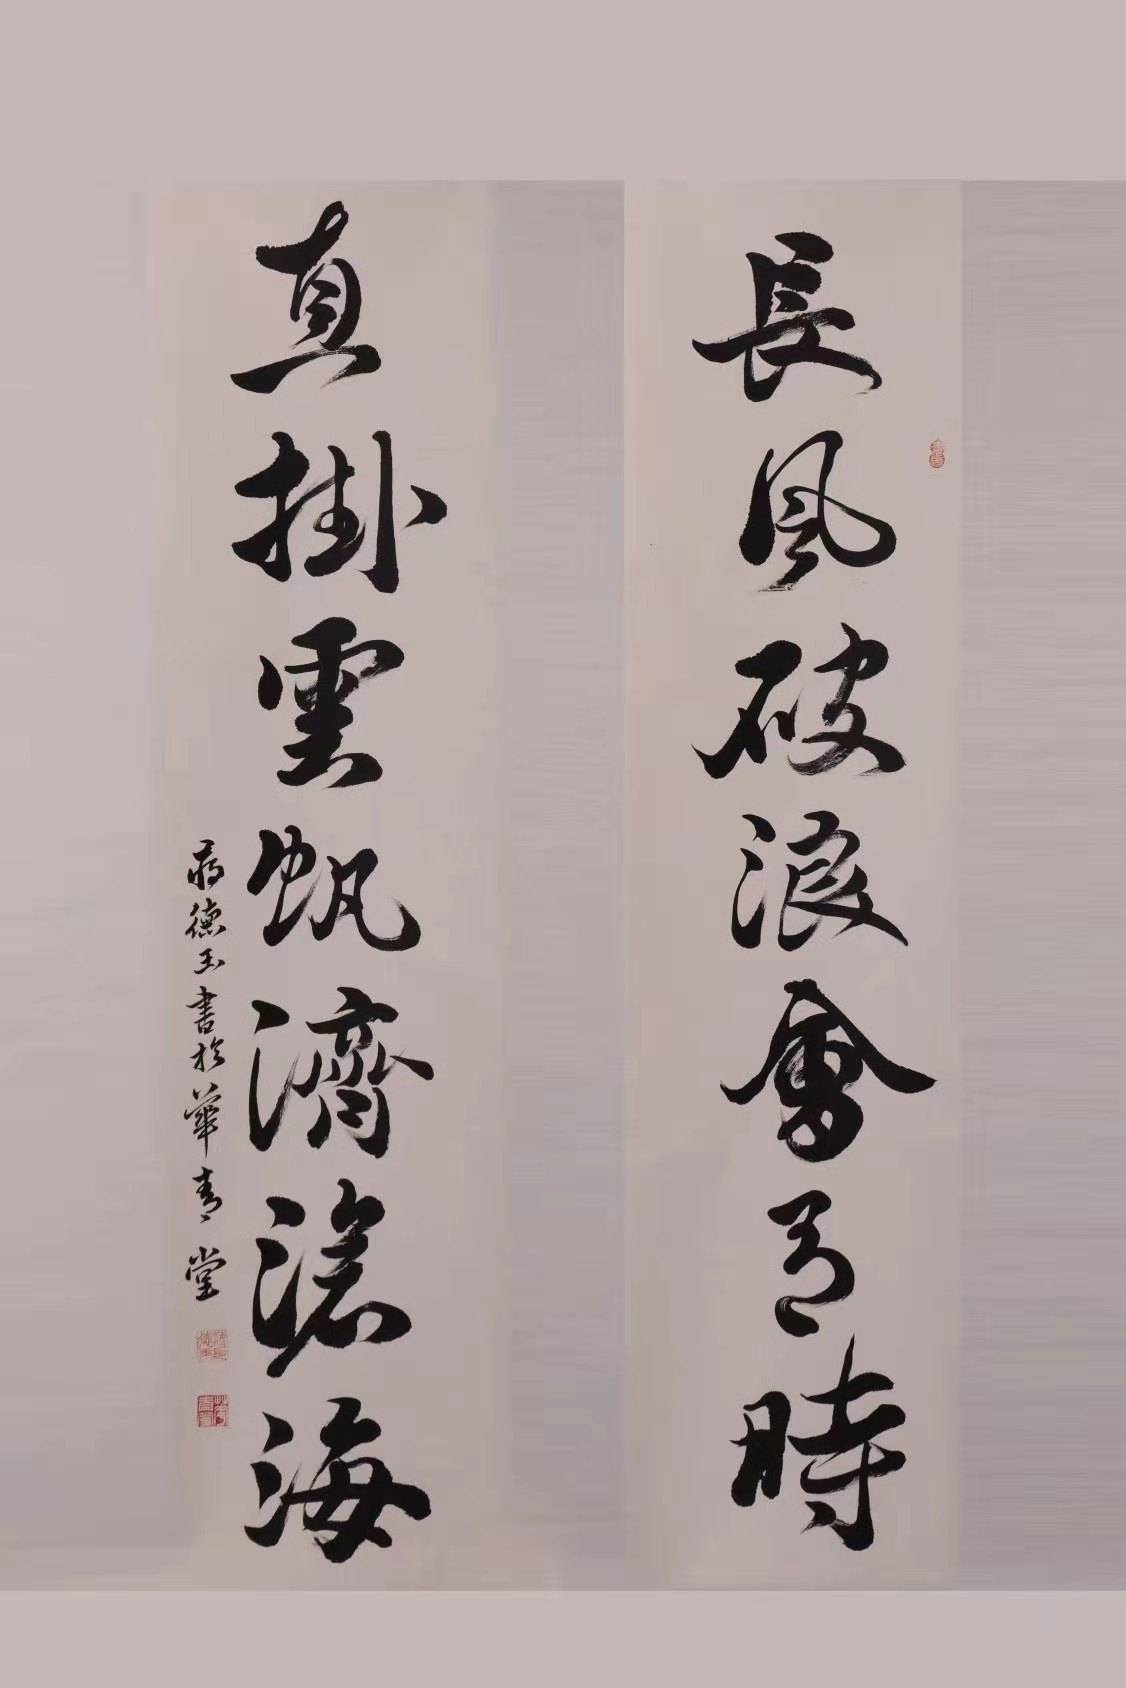 長風破浪會有時
真掛雲帆濟滄海
蔣德玉書於華青堂